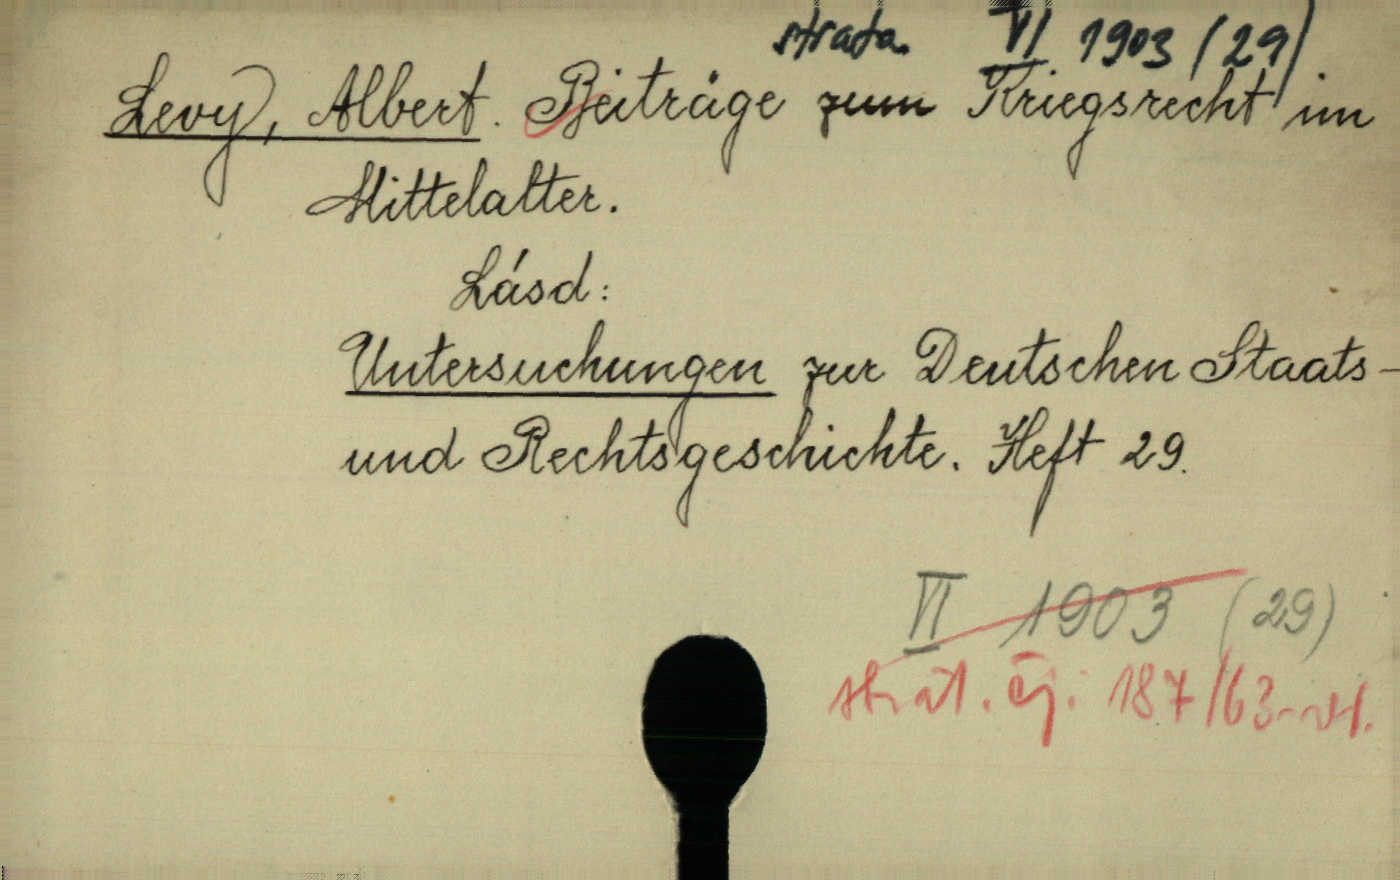 strata VI 1903 (29)
Levy, Albert. Beiträge zum Kriegsrecht im
Mittelalter.
Lásd:
Untersuchungen zur Deutschen Staats-
und Rechtsgeschichte. Heft 29.
VI 1903 (29)
strat. čj. 187/63-